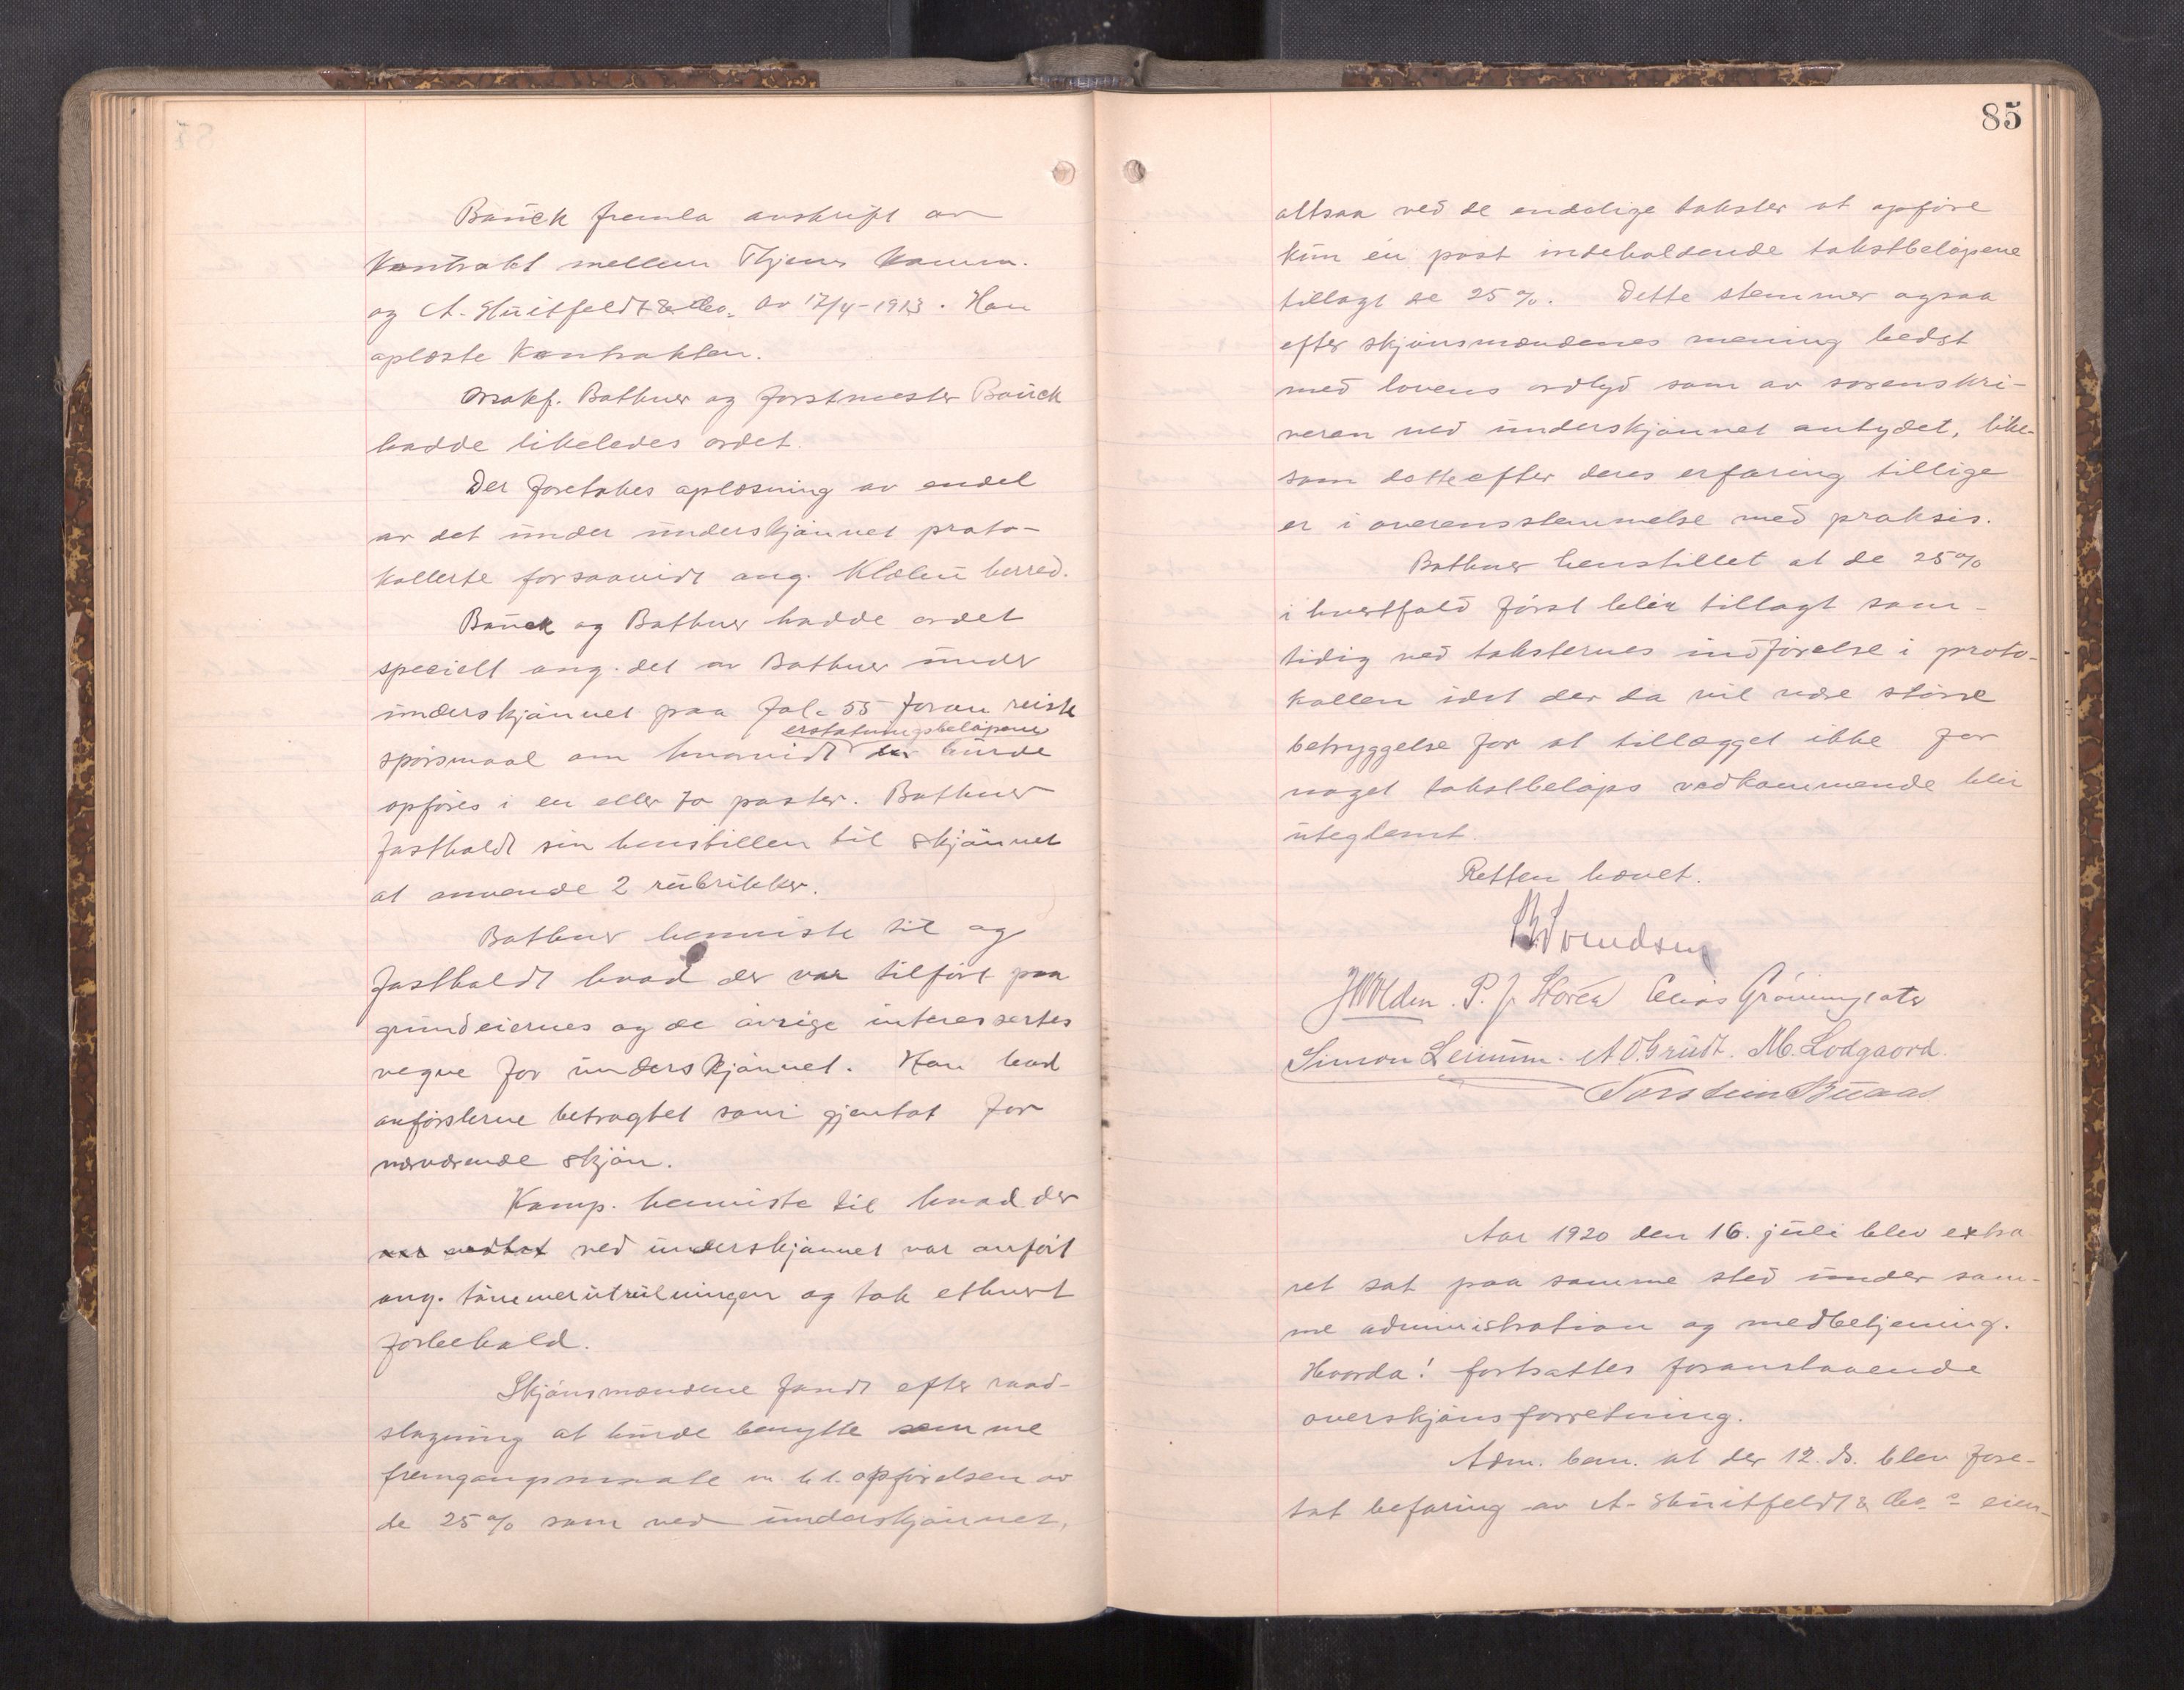 Bauck fremla avskrift av
Kontrakt mellem Trhjems komm.
og A. Huitfeldt & Co. av 17/4-1913. Han
oplæste Kontrakten.
Orsakf. Bathner og forstmester Bauck
hadde likeledes ordet.
Der foretokes oplæsning av endel
av det under underskjønnet proto-
kollerte forsaavidt ang. Klæbu herred.
Bauck og Bathner hadde ordet
specielt ang. det av Bathner under
underskjønnet paa fol. 55 foran reiste
erstatningsbeløpene
spørsmaal om hvorvidt der burde
opføres i en eller to poster. Bathner
fastholdt sin henstillen til skjønnet
at anvende 2 rubrikker.
Bathner henviste til og
fastholdt hvad der var tilført paa
grundeiernes og de øvrige interessertes
vegne for underskjønnet. Han bad
anførslerne betragtet som gjentat for
nærværende skjøn.
Komp. henviste til hvad der
ved underskjønnet var anført
ang. tømmerutrulningen og tok ethvert
forbehold.
Skjønsmændene fandt efter raad-
slagning at burde benytte samme
fremgangsmaate m. h. t. opførelsen av
de 25% som ved underskjønnet,
85
altsaa ved de endelige takster at opføre
kun én post indeholdende takstbeløpene
tillagt de 25%. Dette stemmer ogsaa
efter skjønsmændenes mening bedst
med lovens ordlyd som av sorenskri-
veren ved underskjønnet antydet, like-
som dette efter deres erfaring tillige
er i overensstemmelse med praksis.
Bathner henstillet at de 25%
i hvertfald først blir tillagt sam-
tidig ved taksternes indførelse i proto-
kollen idet der da vil være større
betryggelse for at tillægget ikke for
noget takstbeløps vedkommende blir
uteglemt.
Retten hævet.
Svendsen
J. Olden. P. J. Hovén Elias Grønningsæter
Simon Leinum. A. O. Grudt. M. Lodgaard.
Torstein Buaas
Aar 1920 den 16. juli blev extra
ret sat paa samme sted under sam-
me administration og medbetjening.
Hvorda! fortsattes foranstaaende
overskjønsforretning.
Adm. bem. at der 12. ds. blev fore-
tat befaring av A. Huitfeldt & Co.s eien-